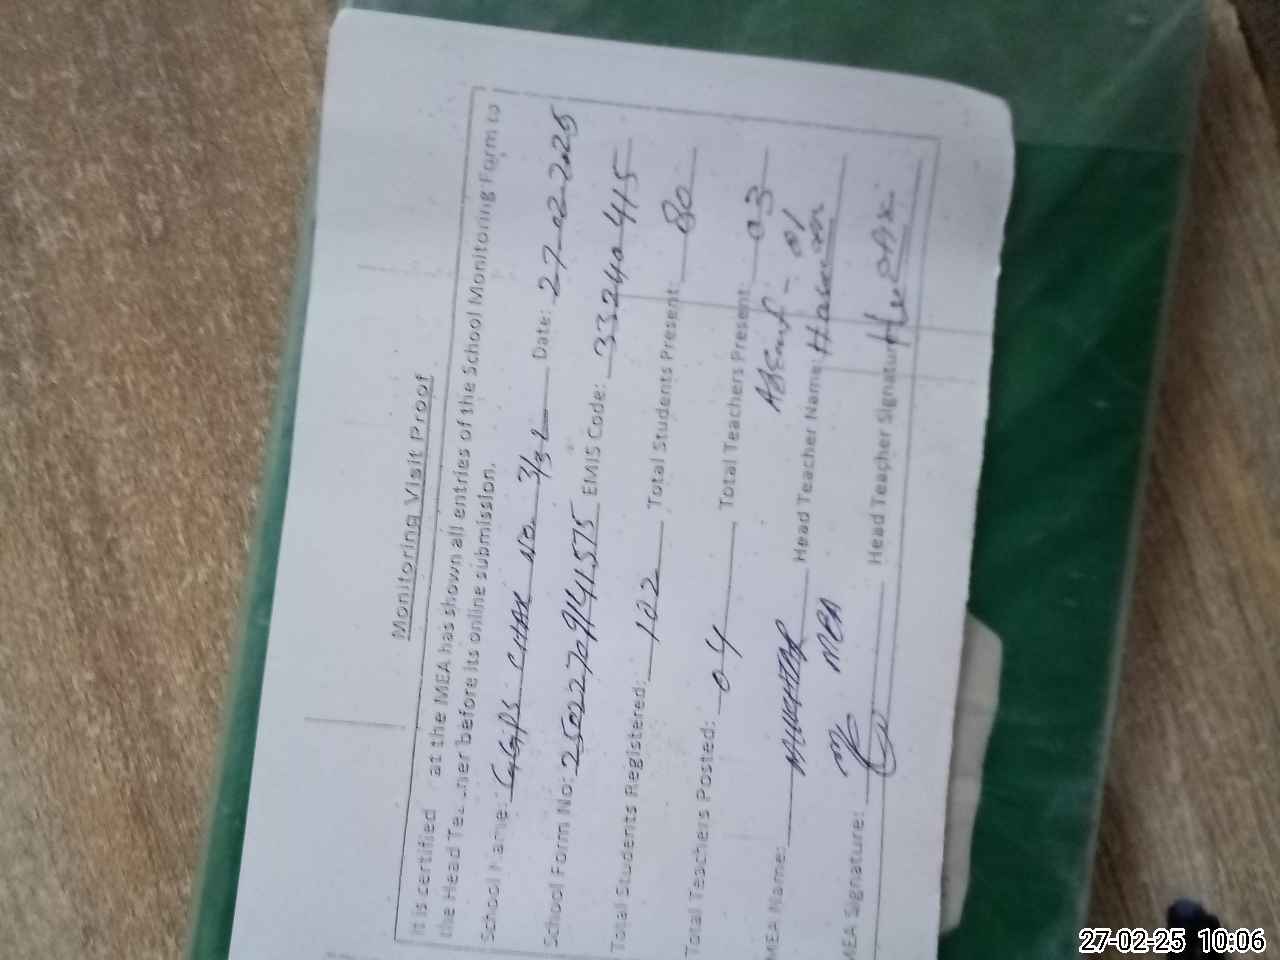 Monitoring Visit Proof
It is certified at the MEA has shown all entries of the School Monitoring Form to
the Head Teacher before its online submission.
School Name: GGPS CHAK NO. 3/3-L Date: 27-02-2025
School Form No: 25022709141575 EMIS Code: 33240415
Total Students Registered: 102 Total Students Present: 80
Total Teachers Posted: 04 Total Teachers Present: 03
Absent - 01
MEA Name: MUKHTAR Head Teacher Name:
MEA Signature: MEA Head Teacher Signature
27-02-25 10:06